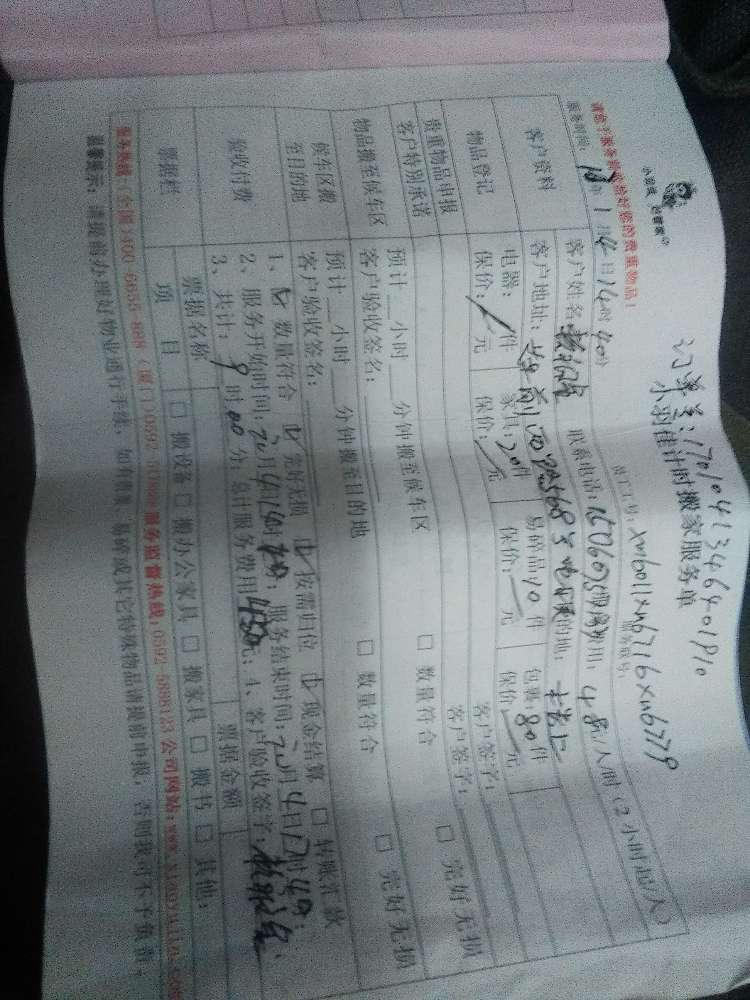 订单差:17010413464019110
小羽佳计时搬家服务单
小羽佳,
请您于服务前收拾好您的贵重物品!
员工工号: xm6011xm6716xm6779
服务联号:
服务时间: 年 1 月 4 日 14 时 40 分
客户资料
客户姓名: 联系电话: 费用: 48元/人/时(2小时起/人)
客户地址: 目的地:
物品登记
电器: 件 家具: 20 件 易碎品 10 件 包裹: 80 件
保价: 元 保价: 元 保价: 元 保价: 元
贵重物品申报 客户签字:
客户特别承诺 客户签字:
物品搬至候车区
预计 小时 分钟搬至候车区 □ 数量符合 □ 完好无损
客户验收签名:
候车区搬至目的地
预计 小时 分钟搬至目的地 □ 数量符合 □ 完好无损
客户验收签名:
验收付费
1、☑ 数量符合 ☑ 完好无损 ☑ 按需归位 ☑ 现金结算 □ 转账付款
2、服务开始时间: 月 4 日 14 时 40 分; 服务结束时间: 月 4 日 17 时 40 分;
3、共计: 9 时 00 分; 总计服务费用 430 元; 4、客户验收签字:
票据栏
票据名称 票据金额
项目 □ 搬设备 □ 搬办公家具 □ 搬家具 □ 搬书 □ 其他:
服务热线:(全国)400-6655-888 (厦门)0592- 服务监督热线:0592-5888123 公司网站:www.xiaoyujia.com
温馨提示:请提前办理好物业通行手续,如有贵重、易碎或其它特殊物品请提前申报,否则我司不予负责。